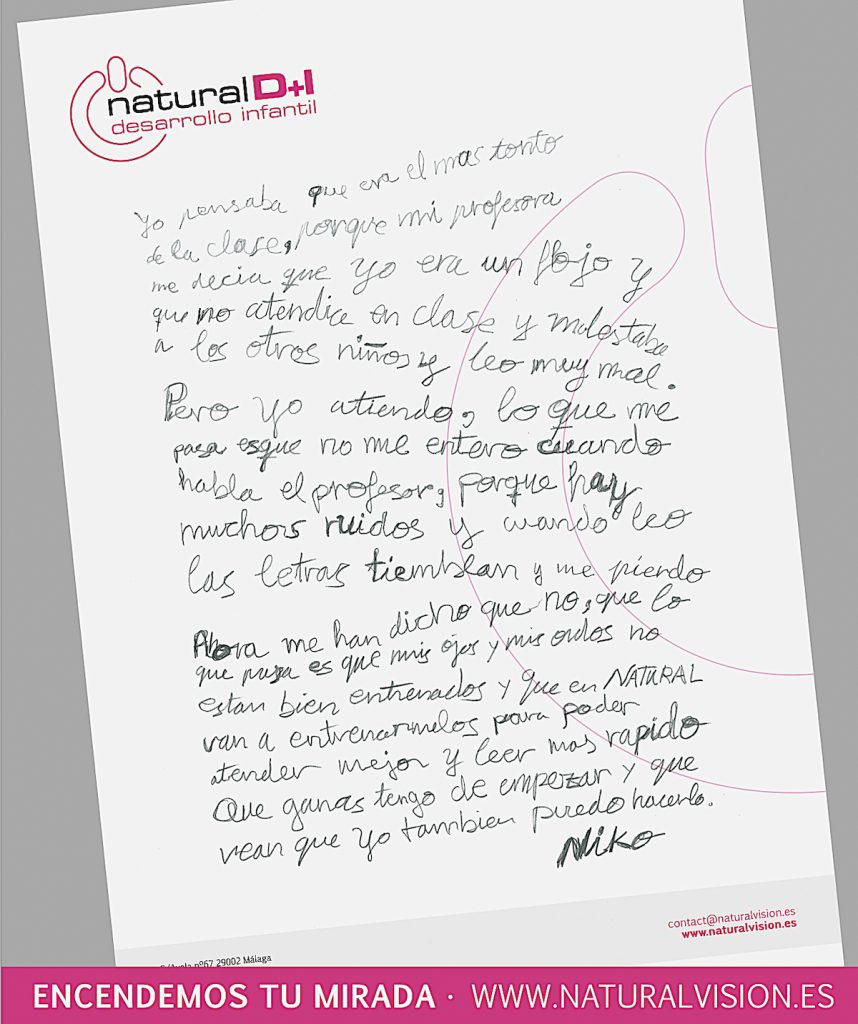 natural D+I
desarrollo infantil
Yo pensaba que era el mas tonto
de la clase, porque mi profesora
me decia que yo era un flojo y
que no atendia en clase y molestaba
a los otros niños y leo muy mal.
Pero yo atiendo, lo que me
pasa esque no me entero cuando
habla el profesor, porque hay
muchos ruidos y cuando leo
las letras tiemblan y me pierdo
Ahora me han dicho que no, que lo
que pasa es que mis ojos y mis oidos no
estan bien entrenados y que en NATURAL
van a entrenarmelos para poder
atender mejor y leer mas rapido
Que ganas tengo de empezar y que
vean que yo tambien puedo hacerlo.
Niko
contact@naturalvision.es
www.naturalvision.es
nº67 29002 Málaga
ENCENDEMOS TU MIRADA · WWW.NATURALVISION.ES